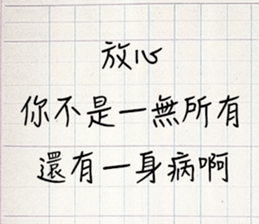 放心
你不是一無所有
還有一身病啊